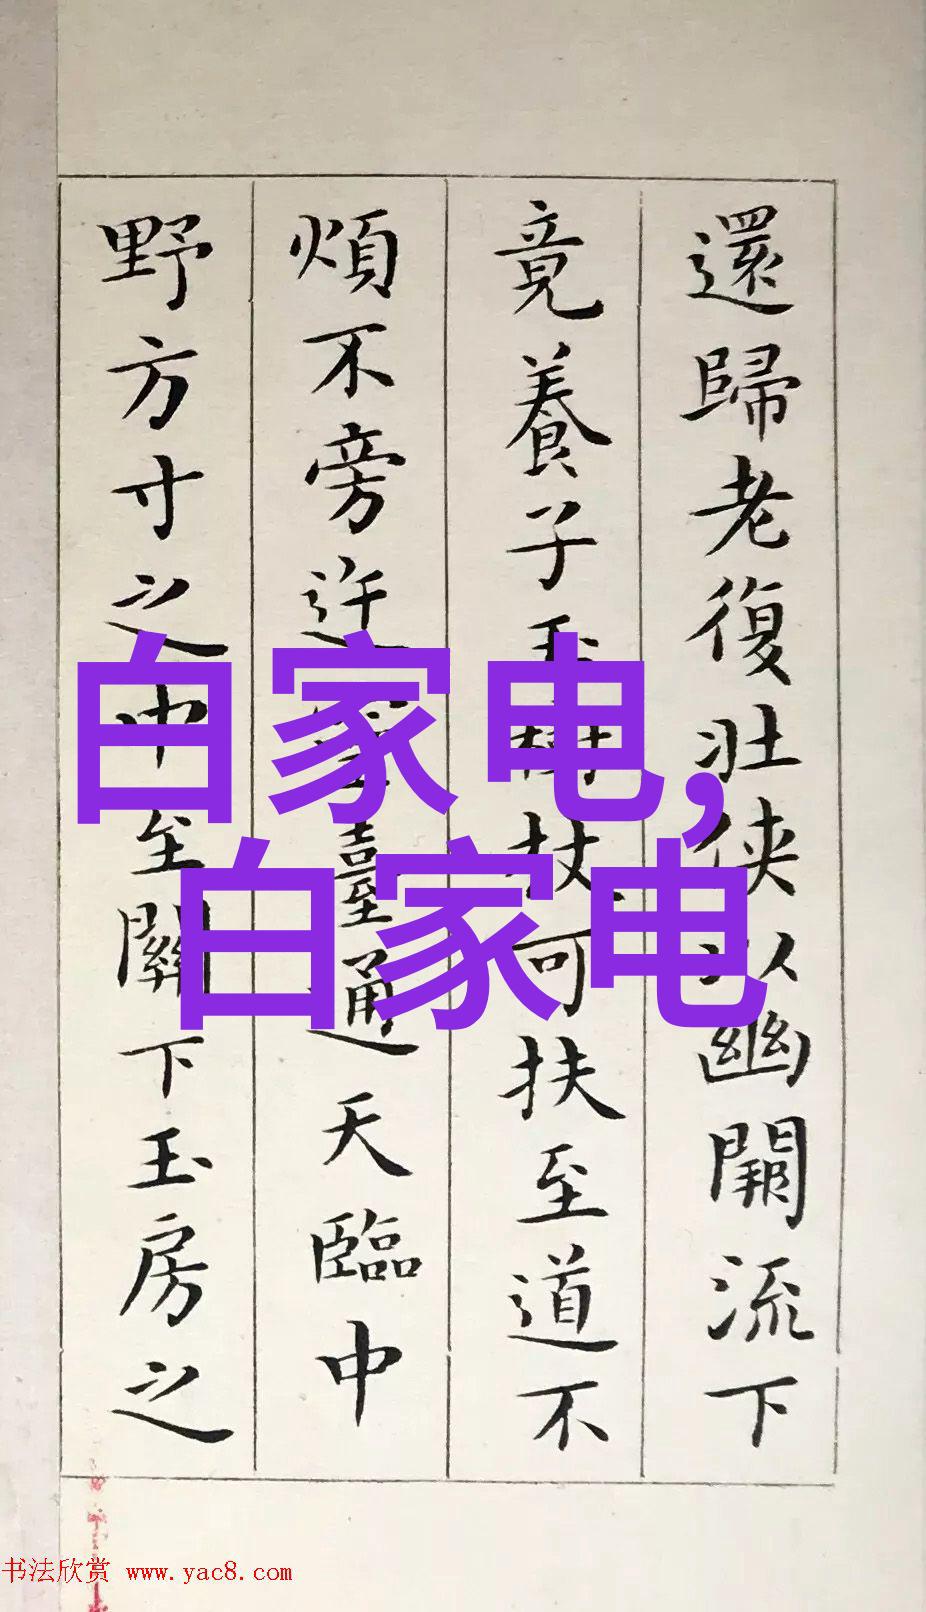 還歸老復壯俠以幽闕流下
竟養子玉樹杖可扶至道不
煩不旁迕靈臺通天臨中
野方寸之中至關下玉房之
白家电,
白家电
书法欣赏 www.yac8.com